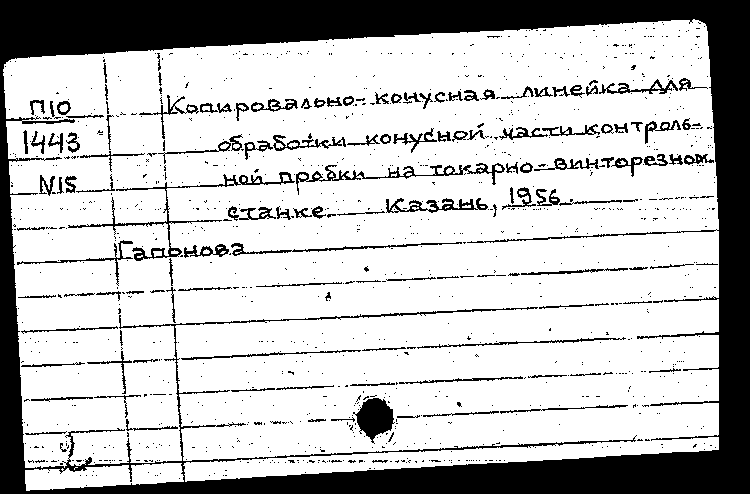 П10
1443
N15
Копировально-конусная линейка для
обработки конусной части контроль-
ной пробки на токарно-винторезном
станке. Казань, 1956.
Гапонова
2